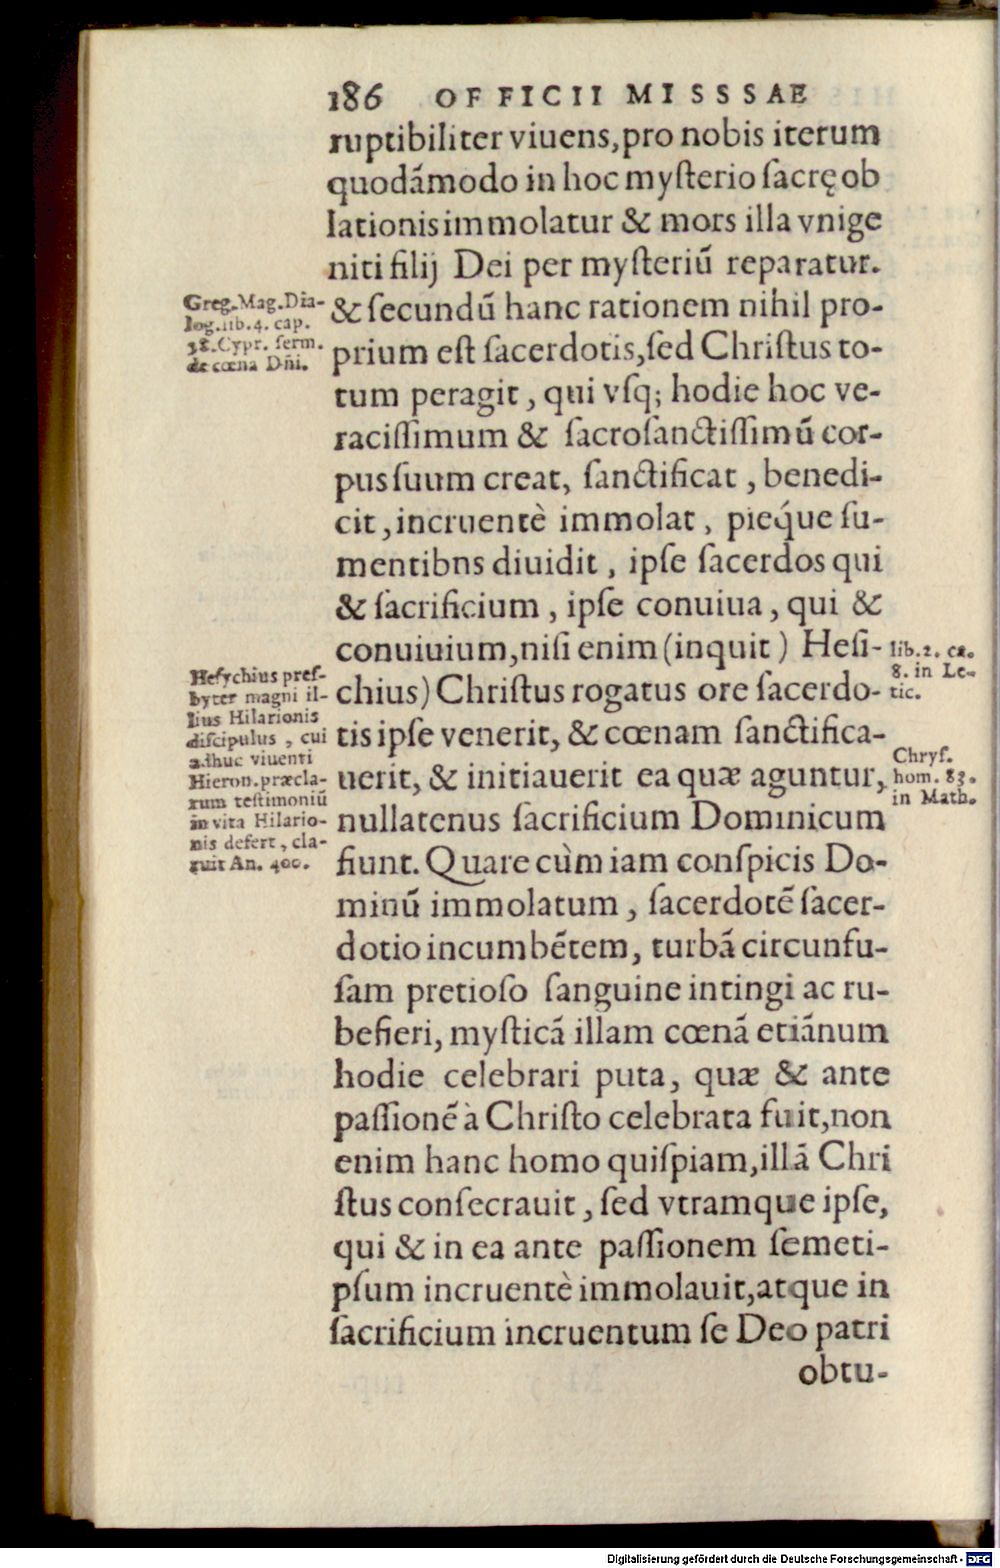 186 OFFICII MISSSAE
ruptibiliter viuens,pro nobis iterum
quodãmodo in hoc myſterio ſacrę ob
lationis immolatur & mors illa vnige
niti filij Dei per myſteriũ reparatur.
& ſecundũ hanc rationem nihil pro-
prium eſt ſacerdotis,ſed Chriſtus to-
tum peragit, qui vſq; hodie hoc ve-
raciſſimum & ſacroſanctiſſimũ cor-
pus ſuum creat, ſanctificat, benedi-
cit, incruentè immolat, pieq́ue ſu-
mentibns diuidit, ipſe ſacerdos qui
& ſacrificium, ipſe conuiua, qui &
conuiuium,niſi enim (inquit) Heſi-
chius) Chriſtus rogatus ore ſacerdo-
tis ipſe venerit, & cœnam ſanctifica-
uerit, & initiauerit ea quæ aguntur,
nullatenus ſacrificium Dominicum
fiunt. Quare cùm iam conſpicis Do-
minũ immolatum, ſacerdotẽ ſacer-
dotio incumbẽtem, turbã circunfu-
ſam pretioſo ſanguine intingi ac ru-
befieri, myſticã illam cœnã etiãnum
hodie celebrari puta, quæ & ante
paſſionẽ à Chriſto celebrata fuit,non
enim hanc homo quiſpiam,illã Chri
ſtus conſecrauit, ſed vtramque ipſe,
qui & in ea ante paſſionem ſemeti-
pſum incruentè immolauit,atque in
ſacrificium incruentum ſe Deo patri
obtu-
Greg.Mag.Dia-
log.lib.4. cap.
38.Cypr. ſerm.
de cœna Dñi.
Heſychius preſ-
byter magni il-
lius Hilarionis
diſcipulus, cui
adhuc viuenti
Hieron.præcla-
rum teſtimoniũ
in vita Hilario-
nis defert, cla-
ruit An. 400.
lib.2. ca.
8. in Le-
tic.
Chryſ.
hom. 83.
in Math.
Digitalisierung gefördert durch die Deutsche Forschungsgemeinschaft - DFG